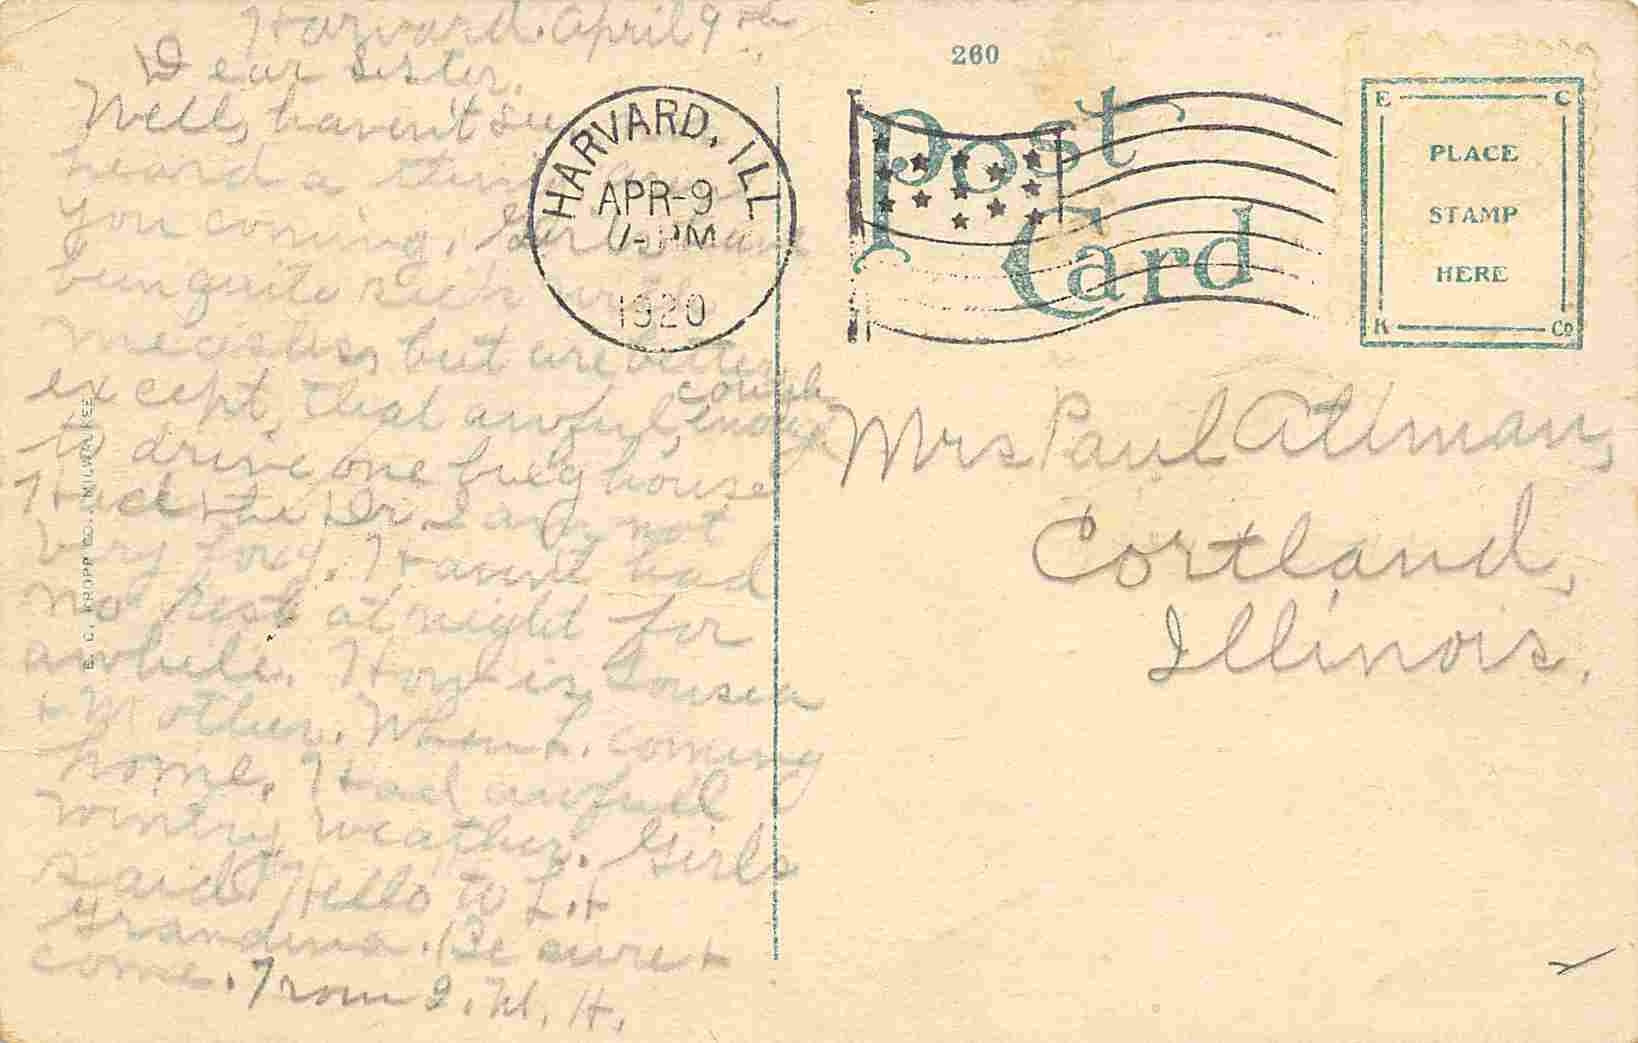 Harvard. April 9th
Dear Sister.
Well, haven't
heard a thing
you coming. Girls have
been quite sick with
measles, but are better
except, that awful, cough
enough
to drive one bughouse
Had the Dr. I am not
very foxy. Haven't had
no rest at night for
awhile. How is
& Mother. When L. coming
home. Had awful
wintry weather. Girls
said Hello to L. &
Grandma. Be sure &
come. From I. M. H.
E. C. KROPP CO., MILWAUKEE
HARVARD, ILL
APR-9
PM
1920
260
Post
Card
E C
PLACE
STAMP
HERE
K Co
Mrs Paul Allman,
Cortland,
Illinois.